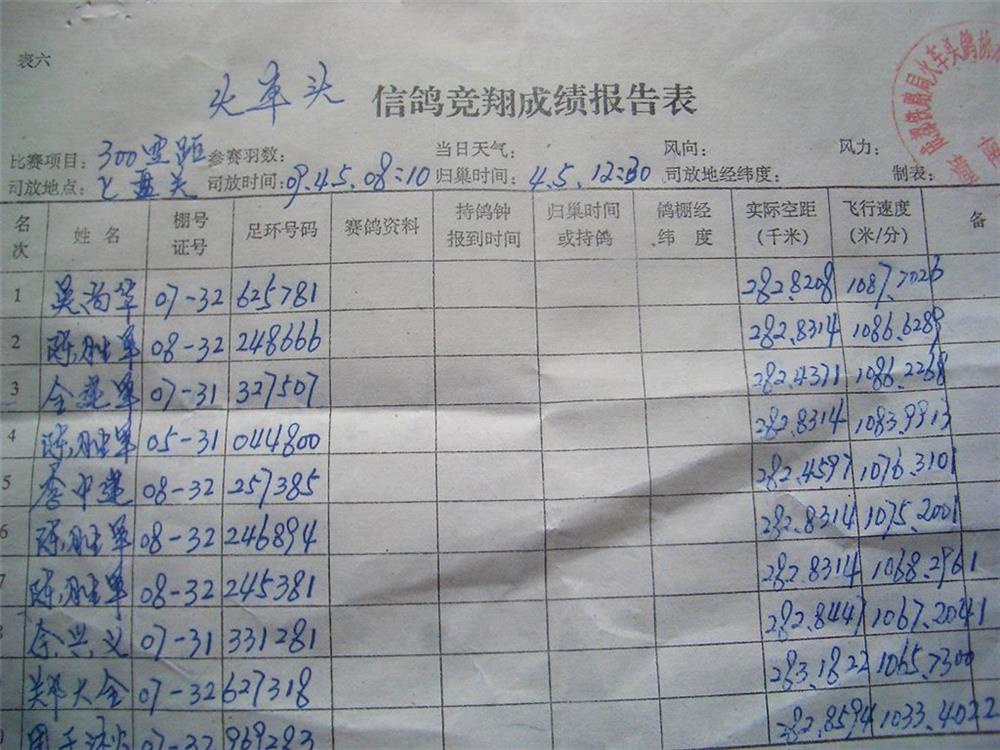 表六
火车头 信鸽竞翔成绩报告表
比赛项目：300空距 参赛羽数： 当日天气： 风向： 风力：
司放地点：七盘关 司放时间：09.4.5.08:10 归巢时间：4.5.12:30 司放地经纬度： 制表：
名次 姓名 棚号证号 足环号码 赛鸽资料 持鸽钟报到时间 归巢时间或持鸽 鸽棚经纬度 实际空距(千米) 飞行速度(米/分) 备
1 吴尚华 07-32 625781 282.8208 1087.7026
2 陈胜军 08-32 248666 282.8314 1086.6289
3 全建军 07-31 327507 282.4371 1086.2268
4 陈胜军 05-31 044800 282.8314 1083.9913
5 李中建 08-32 257385 282.4597 1076.3101
6 陈胜军 08-32 246894 282.8314 1075.2001
7 陈胜军 08-32 245381 282.8314 1068.2961
8 余兴义 07-31 331281 282.8447 1067.2041
郑大全 07-32 627318 283.1822 1065.7300
07-32 969283 282.8594 1033.4022